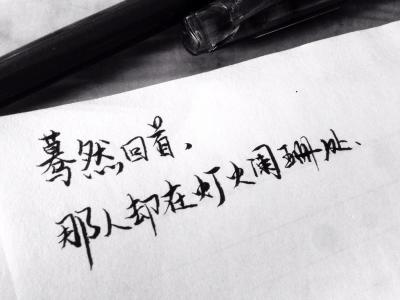 蓦然回首,
那人却在灯火阑珊处、